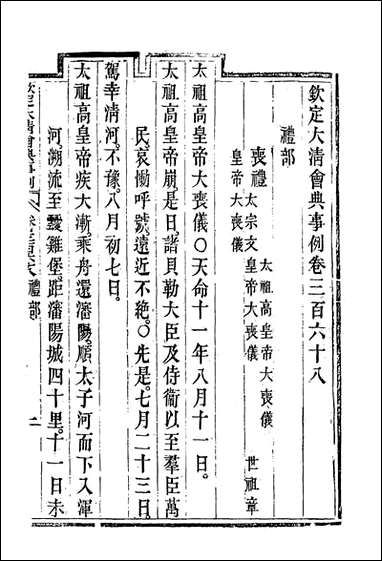 欽定大清會典事例卷三百六十八
禮部
喪禮
太祖高皇帝大喪儀
太宗文皇帝大喪儀
世祖章皇帝大喪儀
太祖高皇帝大喪儀○天命十一年八月十一日。
太祖高皇帝崩是日。諸貝勒大臣及侍衞以至羣臣萬
民。哀慟呼號。遠近不絕。○先是。七月二十三日。
駕幸清河。不豫。八月初七日。
太祖高皇帝疾大漸。乘舟還瀋陽。順太子河而下入渾
河。溯流至靉雞堡。距瀋陽城四十里。十一日未
欽定大清會典事例
禮部